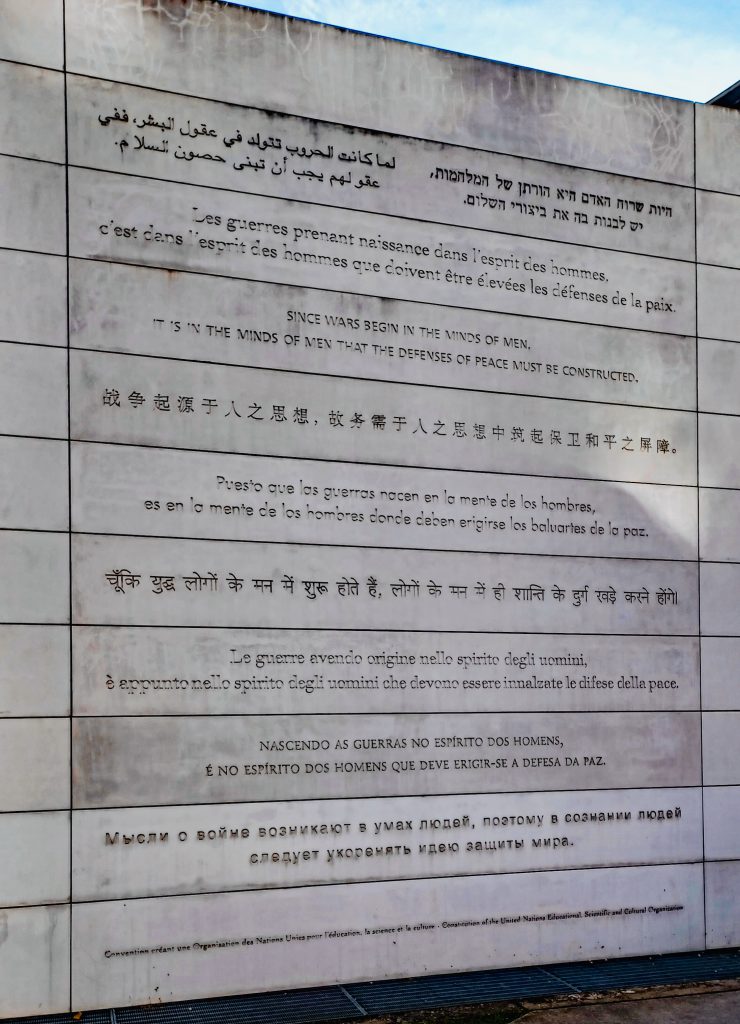 لما كانت الحروب تتولد في عقول البشر، ففي
عقولهم يجب أن تبنى حصون السلام.
היות שרוח האדם היא הורתן של המלחמות,
יש לבנות בה את ביצורי השלום.
Les guerres prenant naissance dans l'esprit des hommes,
c'est dans l'esprit des hommes que doivent être élevées les défenses de la paix.
SINCE WARS BEGIN IN THE MINDS OF MEN,
IT IS IN THE MINDS OF MEN THAT THE DEFENSES OF PEACE MUST BE CONSTRUCTED.
战争起源于人之思想，故务需于人之思想中筑起保卫和平之屏障。
Puesto que las guerras nacen en la mente de los hombres,
es en la mente de los hombres donde deben erigirse los baluartes de la paz.
चूँकि युद्ध लोगों के मन में शुरू होते हैं, लोगों के मन में ही शान्ति के दुर्ग खड़े करने होंगे।
Le guerre avendo origine nello spirito degli uomini,
è appunto nello spirito degli uomini che devono essere innalzate le difese della pace.
NASCENDO AS GUERRAS NO ESPÍRITO DOS HOMENS,
É NO ESPÍRITO DOS HOMENS QUE DEVE ERIGIR-SE A DEFESA DA PAZ.
Мысли о войне возникают в умах людей, поэтому в сознании людей
следует укоренять идею защиты мира.
Convention créant une Organisation des Nations Unies pour l'éducation, la science et la culture - Constitution of the United Nations Educational, Scientific and Cultural Organization